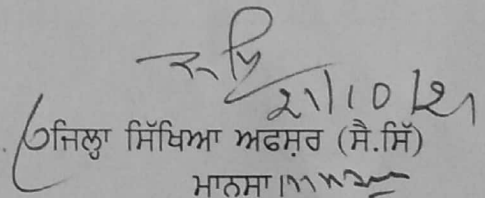 21/10/21
ਜਿਲ੍ਹਾ ਸਿੱਖਿਆ ਅਫਸ਼ਰ (ਸੈ.ਸਿੱ)
ਮਾਨਸਾ।